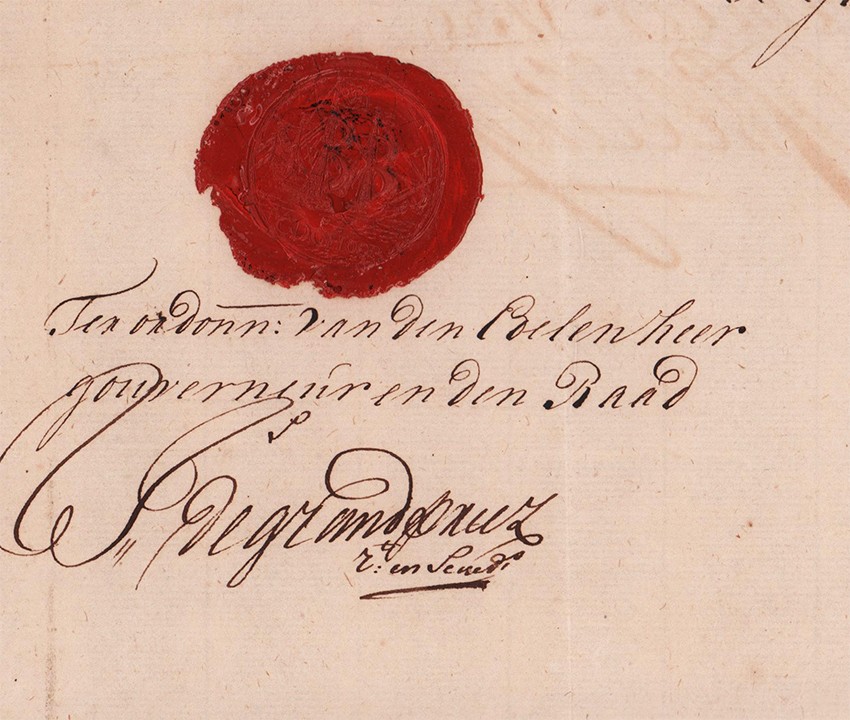 Ter ordonn: van den Edelen heer
gouverneur en den Raad
S: de Grandpreez
r: en Secret:s